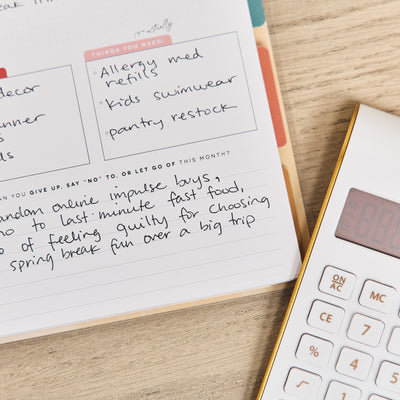 eak
it's actually
THINGS YOU NEED:
Allergy med
refills
kids swimwear
pantry restock
decor
nner
s
ds
AN YOU GIVE UP, SAY "NO" TO, OR LET GO OF THIS MONTH?
andom online impulse buys,
no to last minute fast food,
o of feeling guilty for choosing
spring break fun over a big trip
ON
AC
MC
CE
7
%
4
5
√
1